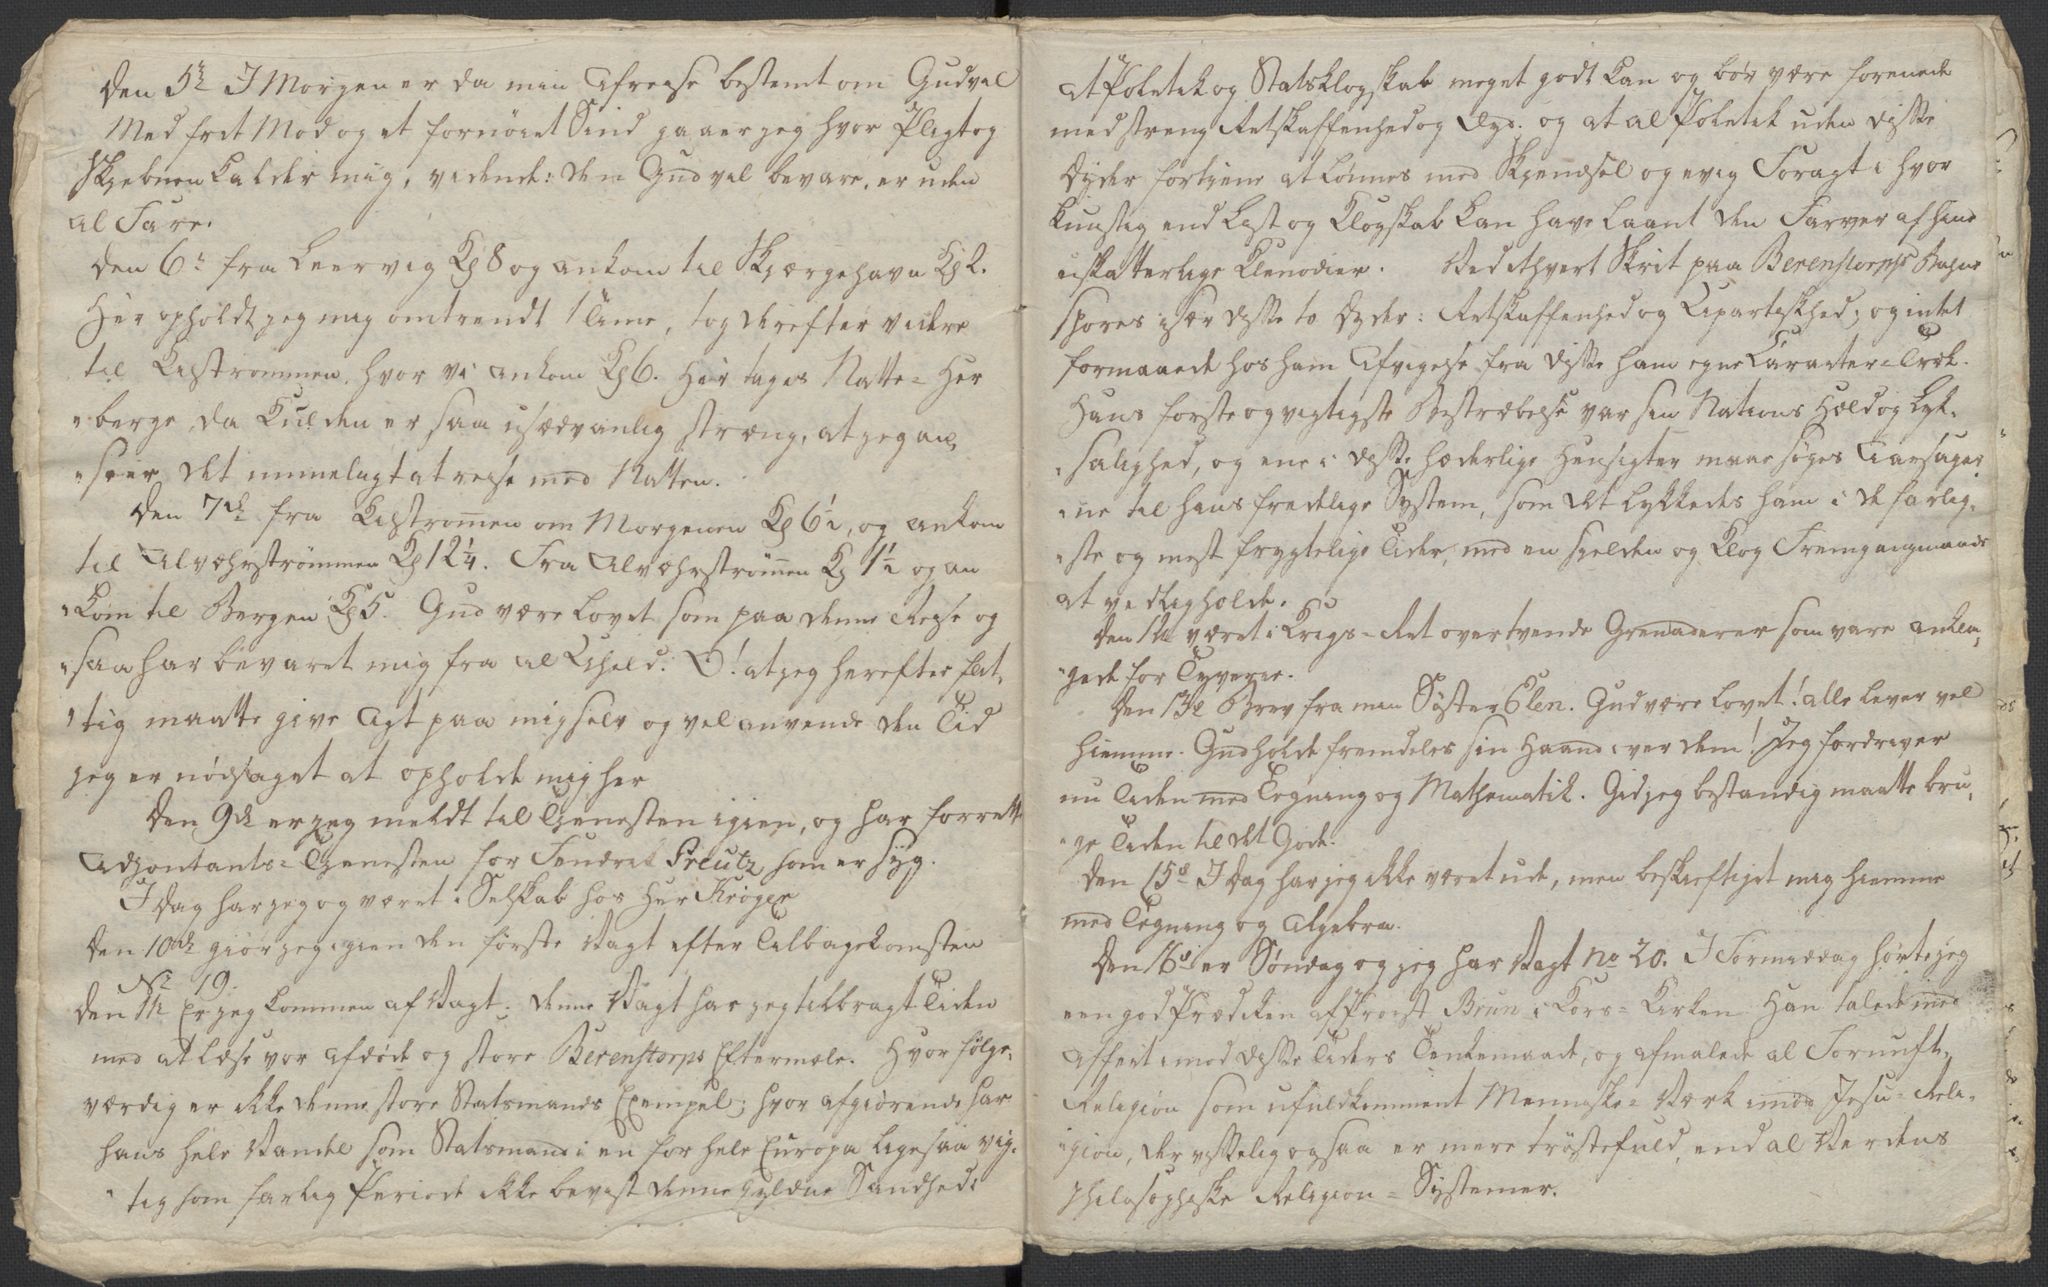 Den 5te I Morgen er da min Afreise bestemt om Gud vil
Med frit Mod og et fornøiet Sind gaaer jeg hvor Pligt og
Skjebnen kalder mig, vidende: den Gud vil bevare, er uden
al Fare.
Den 6te fra Leervig Kl 8 og ankom til Skjærgehavn Kl 2.
Her opholdt jeg mig omtrendt 1 Time, tog derefter videre
til Kilstrømmen, hvor vi ankom Kl 6. Her tages Natte-Her
berge, da Kulden er saa usædvanlig stræng, at jeg an,
seer det umueligt at reise med Natten.
Den 7de fra Kilstrømmen om Morgenen Kl 6½, og ankom
til Alvæhrstrømmen Kl 12¼. Fra Alvæhrstrømmen Kl 1½ og an
kom til Bergen Kl 5. Gud være lovet som paa denne Reise og
saa har bevaret mig fra al Uheld. O! at jeg herefter flit,
tig maatte give Agt paa mig selv og vel anvende den Tid
jeg er nødsaget at opholde mig her
Den 9de er jeg meldt til Tjenesten igien, og har forrett
Adjontants-Tjenesten for Fendrik Creutz som er syg.
I Dag har jeg og været i Selskab hos Her Krøger
Den 10de giør jeg igien den første Vagt efter Tilbagekomsten
No 19.
Den 11te Er jeg kommen af Vagt; denne Vagt har jeg tilbragt Tiden
med at læse vor afdøde og store Berenstorps Eftermæle. Hvor følge,
værdig er ikke denne store Statsmands Exempel; hvor afgiørende har
hans hele Vandel som Statsmand i en for hele Europa ligesaa vig,
tig som farlig Periode ikke beviist denne gyldne Sandhed:
At Poletik og Statsklogskab meget godt kan og bør være forenede
med streng Retskaffenhed og Dyd. og at al Poletik uden disse
Dyder fortjene at lønnes med Skjendsel og evig Foragt i hvor
kunstig end List og Klogskab kan have laant den Farver af hine
uskatterlige Klenodier. Ved ethvert Skrit paa Berenstorphs Bahne
spores især disse to Dyder: Retskaffenhed og Upartiskhed; og intet
formaaede hos ham Afvigelse fra disse ham egne Caracter-Træk.
Hans første og vigtigste Bestræbelse var sin Nations Held og Lyk,
salighed, og ene i disse hæderlige Hensigter maae søges Aarsager
ne til hans fredelige System, som det lykkedes ham i de farlig,
ste og mest frygtelige Tider, med en sjelden og klog Fremgangsmaade
at vedligholde.
Den 12te været i Krigs-Ret over tvende Grenaderer som vare ankla,
gede for Tyverie.
Den 13de Brev fra min Søster Elen. Gud være lovet! alle lever vel
hiemme. Gud holde fremdeles sin Haand over dem! Jeg fordriver
nu Tiden med Tegning og Mathematik. Gid jeg bestandig maatte bru,
ge Tiden til det Gode.
Den 15de I Dag har jeg ikke været ude, men beskieftiget mig hiemme
med Tegning og Algebra.
Den 16de er Søndag og jeg har Vagt no 20. I Formiddag hørte jeg
een god Prædiken af Provst Brun i Kors-Kirken Han talede med
Affeit imod disse Tiders Tenkemaade, og afmalede al Fornuft-
Religion som ufuldkomment Menneske-Værk imod Jesu-Reli-
gion, der visselig ogsaa er mere trøstefuld, end al Verdens
philosophiske Religion-Systemer.